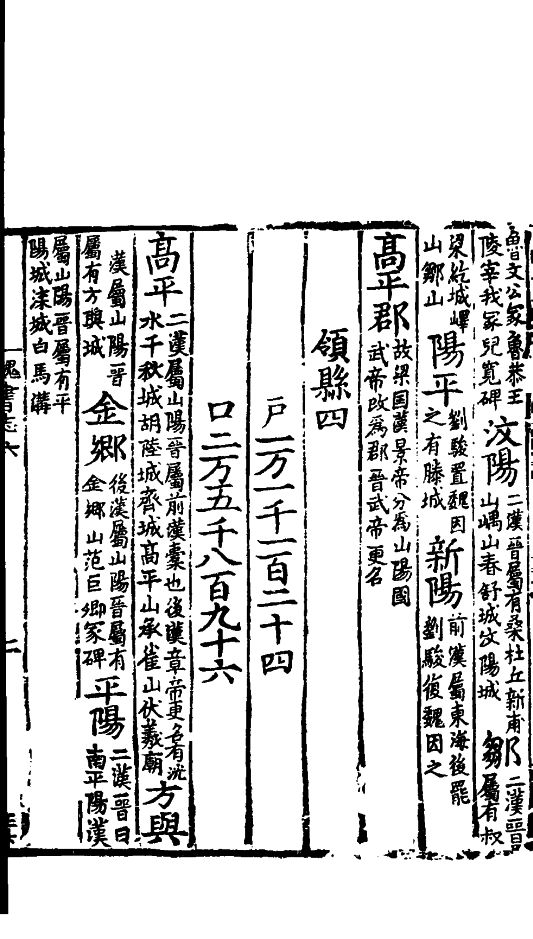 魯文公冢魯恭王
陵宰我冢兒寬碑
汶陽
二漢晉屬有桑杜丘新甫
山嵎山春舒城汶陽城
鄒
二漢晉
屬有叔
梁紇城嶧
山鄒山
陽平
劉駿置魏因
之有滕城
新陽
前漢屬東海後罷
劉駿復魏因之
高平郡
故梁国漢景帝分為山陽國
武帝改為郡晉武帝更名
領縣四
戸一万一千一百二十四
口二万五千八百九十六
高平
二漢屬山陽晉屬前漢橐也後漢章帝更名有洸
水千秋城胡陸城齊城高平山承雀山伏羲廟
方與
二漢屬山陽晉
屬有方與城
金鄉
後漢屬山陽晉屬有
金鄉山范巨卿冢碑
平陽
二漢晉曰
南平陽漢
屬山陽晉屬有平
陽城漆城白馬溝
魏書志六